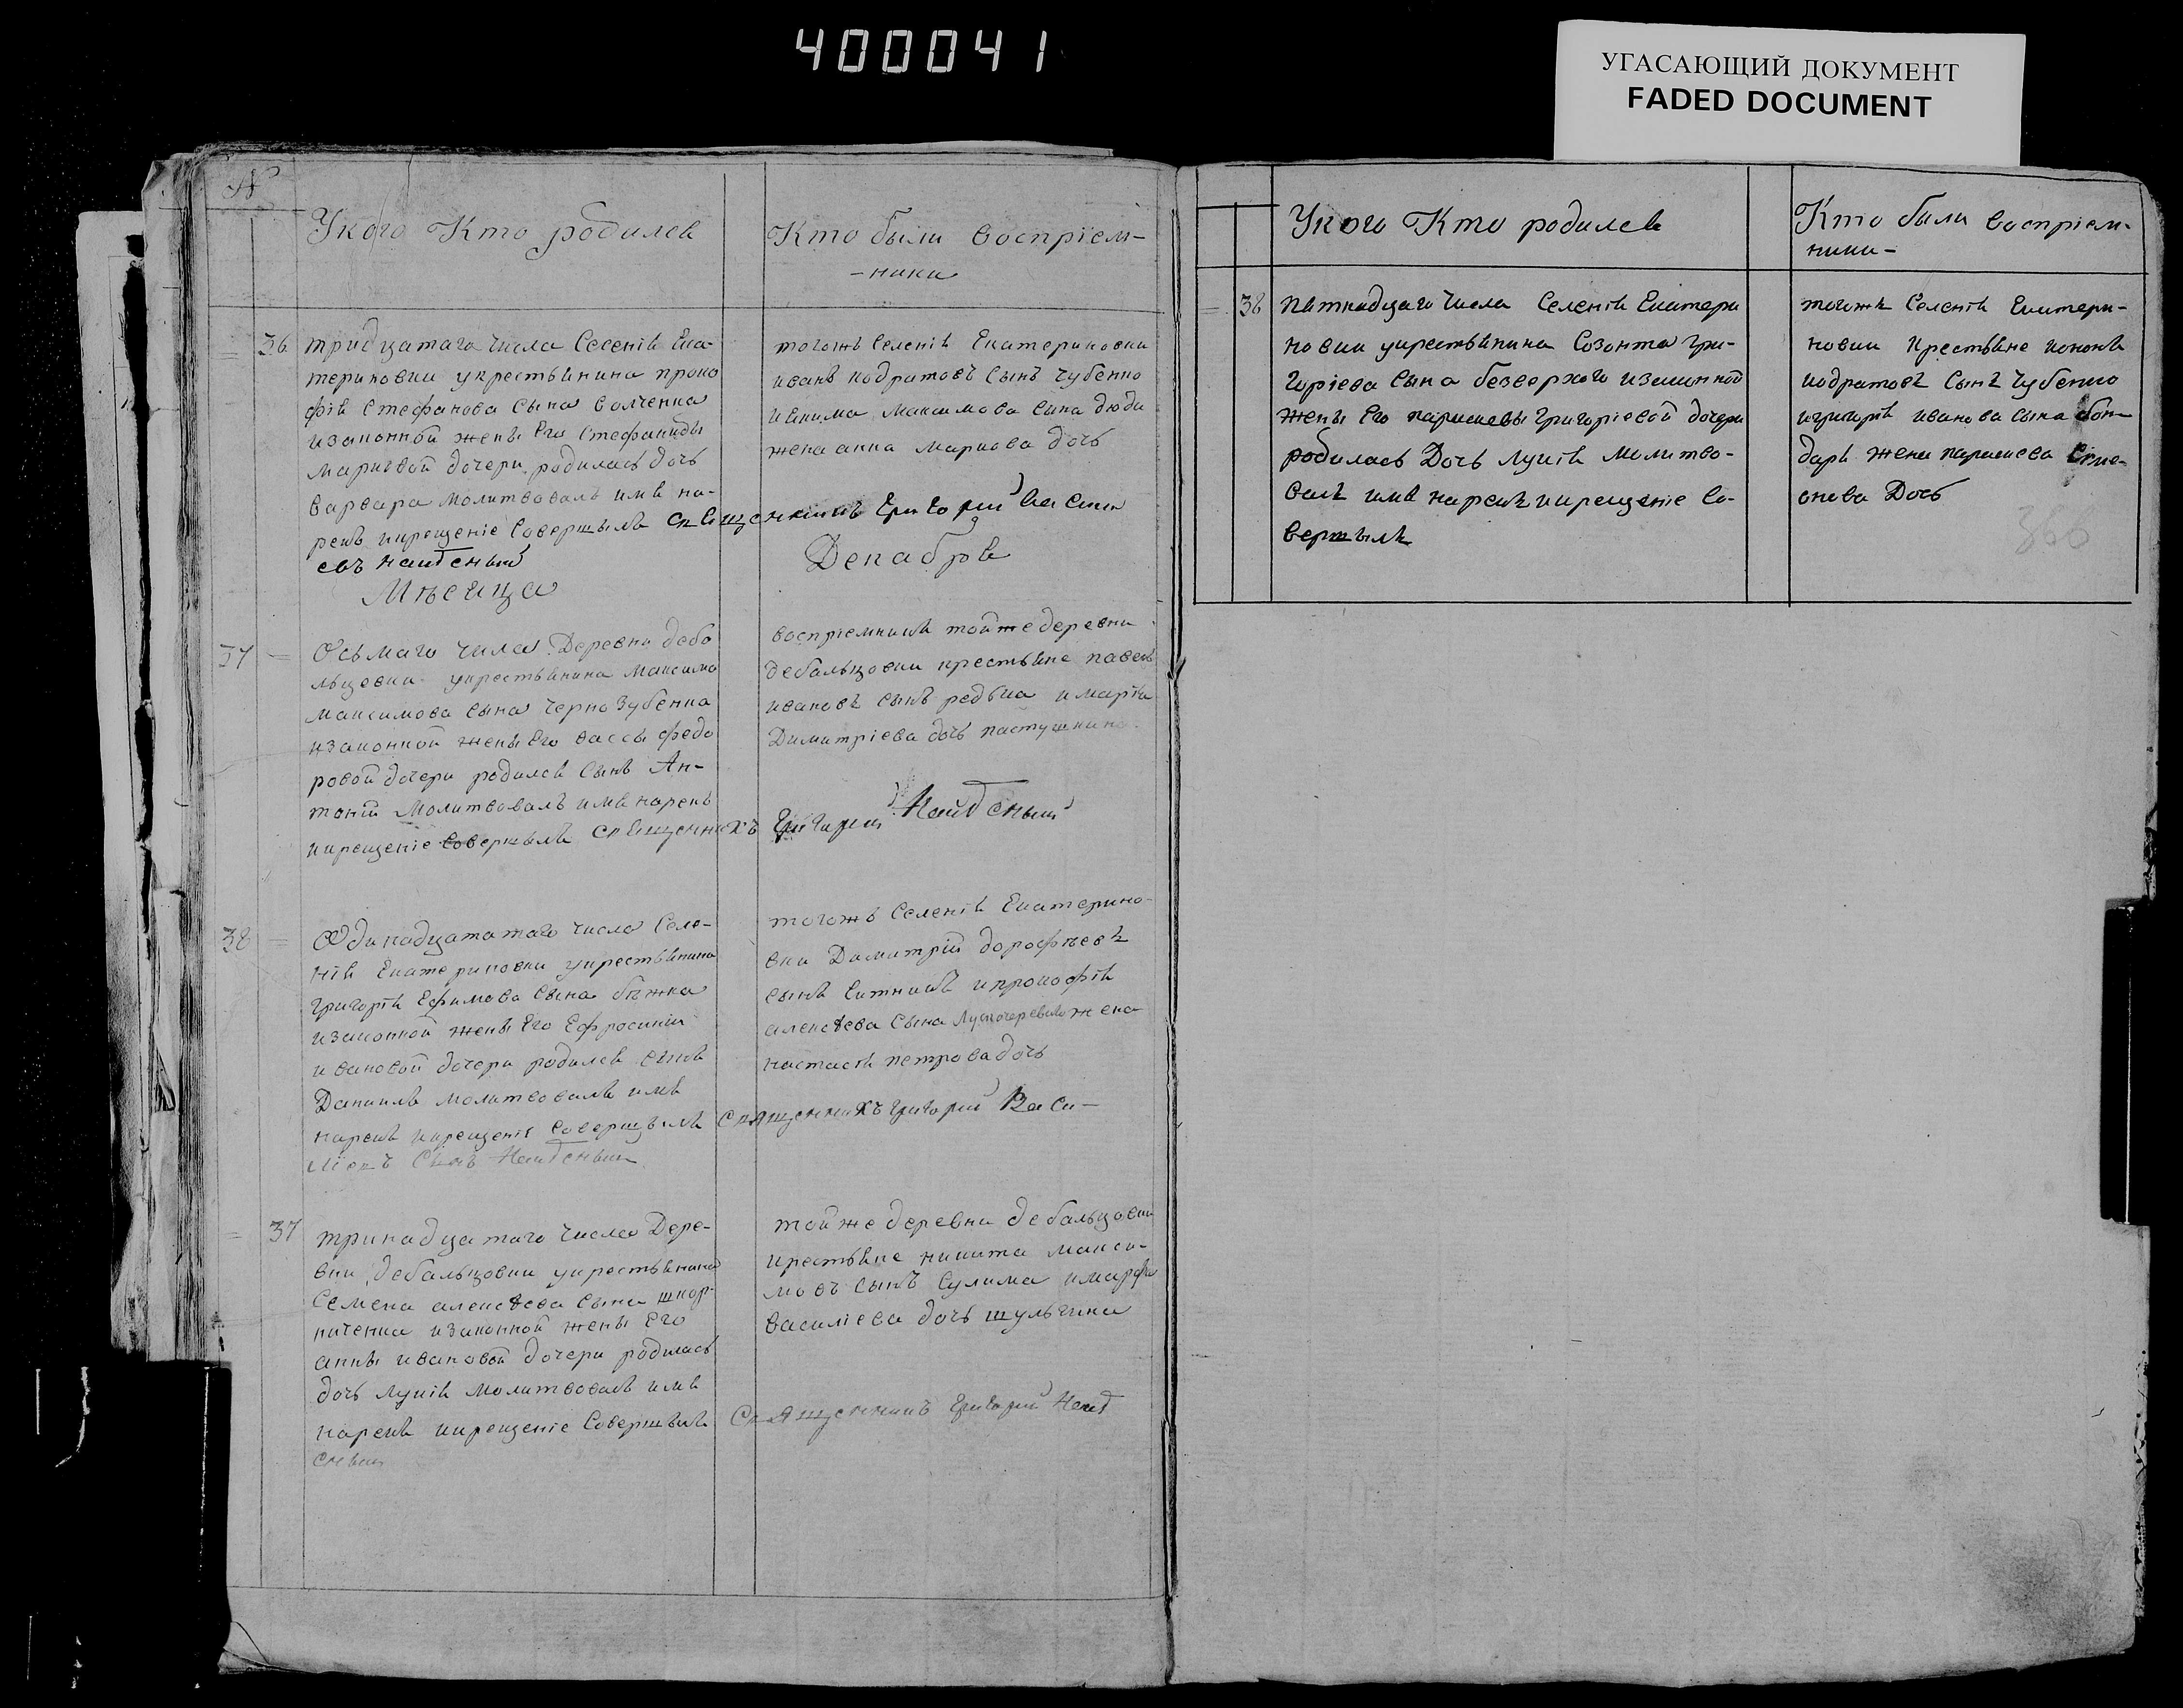 400041
УГАСАЮЩИЙ ДОКУМЕНТ
FADED DOCUMENT
№
Укого Кто родилса
Кто были воспріем-
-ники
36 тридцатаго числа Селенія Ека-
териновки украстьянина проко
фія Стефанова сына волченка
изаконной жены Его Стефаниды
дочери родилась дочь
варвара молитвовалъ имя на-
рекъ икрещеніе Совершылъ священникъ Григорий Васи
евъ найденый
тогожъ Селенія Екатериновки
иванъ кодратовъ Сынъ Чубенко
иякима Максимова сына дюди
жена анна маркова дочь
Мѣсяца
Декабря
37 Осьмаго числа Деревни деба
льцовки укрестьянина Максима
максимова сына Чернозубенка
изаконной жены Его вассы федо
ровой дочери родился Сынъ Ан-
тоній Молитвовалъ имя нарекъ
икрещеніе совершылъ священникъ Григорий Найденый
воспріемники тойже деревни
дебальцовки крестьяне павелъ
ивановъ сынъ редька имарія
Димитріева дочь пастушкина
38 Одинадцататаго числа Селе-
нія Екатериновки укрестьянина
григорія Ефимова сына бѣжка
изаконной жены Его Ефросиніи
ивановой дочери родился сынъ
Даниилъ молитвовалъ имя
нарекъ икрещеніе совершылъ священникъ григорий Васи-
лієвъ Сынъ Найденый
тогожъ Селенія Екатерино-
вки Димитрій дорофѣевъ
сынъ Ситникъ ипрокофія
алексѣева сына жена
настасія петрова дочь
37 тринадцатаго числа Дере-
вни дебальцовки укрестьянина
Семена алексѣева сына шкор-
ниченка изаконной жены Его
анны ивановой дочери родилась
дочь лукія молитвовалъ имя
нарекъ икрещеніе Совершылъ Священникъ Григорий Найд
еный
тойже деревни дебальцовки
крестьяне никита макси-
мовъ сынъ Сулима имарфа
василіева дочь шульгина
Укого Кто родилса
Кто были воспріем-
ники-
38 пятнадцаго числа Селенія Екатери
новки укрестьянина Созонта гри-
горіева сына безверхого изаконной
жены Его параскевы григоріевой дочери
родилась Дочь лукія молитво-
валъ имя нарекъ икрещеніе Со-
вершылъ
тогожъ Селенія Екатери-
новки крестьяне кононъ
кодратовъ Сынъ Чубенко
игригорія иванова сына бон-
даря жена параскева
Дочь
360